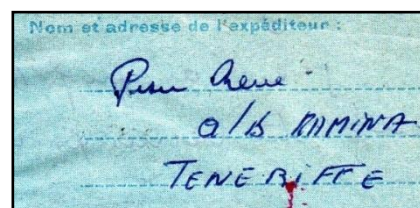 Nom et adresse de l'expéditeur :
a/b KAMINA
TENERIFFE